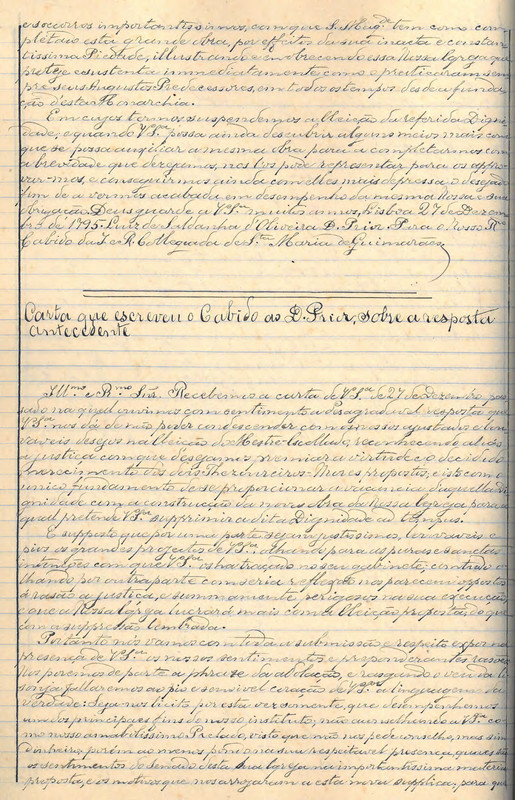 e soccorros importantissimos, com que S. Mag.de tem como com-
pletado esta grande Obra, por effeitos da sua inacta e constan-
tissima Piedade, illustrando e nobrecendo essa Nossa Igreja que
protege e sustenta immediatamente como o praticaram sem-
pre seus Augustos Predecessores, em todos os tempos desde a funda-
ção d'esta Monarchia.
Em cujos termos suspendemos a Eleição da referida Digni-
dade, e quando V.S.as possa ainda descubrir alguns meios mais com
que se possa auxiliar a mesma Obra para a completarmos com
a brevidade que dezejamos, nos los póde representar para os appro-
varmos, e conseguirmos ainda com elles mais depressa o desejado
fim de a vermos acabada em desempenho da mesma Nossa e sua
obrigação. Deus guarde a V.S.as muitos annos, Lisboa 27 de Dezem-
bro de 1795. Luiz de Saldanha d'Oliveira D. Prior. Para o Nosso R.mo
Cabido da I. e R. Collegiada de S.ta Maria de Guimarães
Carta que escreveu o Cabido ao D. Prior, sobre a resposta
antecedente
Ill.mo e R.mo Snr. Recebemos a carta de V.S.a de 27 de Dezembro, pas-
sado na qual ouvimos com sentimento a desagradavel resposta que
V.S.a nos dá de não poder condescender com os nossos ajustados e lou-
vaveis desejos na Eleição do Mestre-Escollado, reconhecendo aliás
a justiça com que desejamos, premiar a virtude e o decidido
merecimento dos dois Thezoureiros-Mores propostos, e isto com o
unico fundamento de se proporcionar a vagancia d'aquella di-
gnidade com a construcção da nova Obra da Nossa Igreja para a
qual pretende V.S.a supprimir a dita Dignidade ad tempus.
E supposto que por uma parte sejam justissimos, louvaveis e
pios os grandes projectos de V.S.a, olhando para as puras e sanctas
intenções com que V.S.a os ha traçado no seu gabinete; comtudo o-
lhando por outra parte com seria reflexão nos parecem oppostos
á rasão a justiça, e summamente perigosos na sua execução,
e que a Nossa Igreja lucrará mais com a Eleição proposta do que
com a suppressão lembrada.
Portanto nós vamos com toda a submissão e respeito expor na
presença de V.S.a os nossos sentimentos e preponderantes rasões.
Nós poremos de parte a phrase da adulação, e rasgando o veu da li-
sonja fallaremos ao pio e sensivel coração de V.S.a a linguagem da
verdade: Seja-nos licito, por esta vez somente, que desempenhemos
um dos principaes fins do nosso instituto, não aconselhando a V.S.a co-
mo nosso amabilissimo Prelado, visto que não nos pede conselho, mas sim
porém ao menos, pondo na sua respeitavel presença, quaes são
os sentimentos do Senado d'esta Sua Igreja na importantissima materia
proposta, e os motivos que nos arrojaram a esta nova supplica, para que